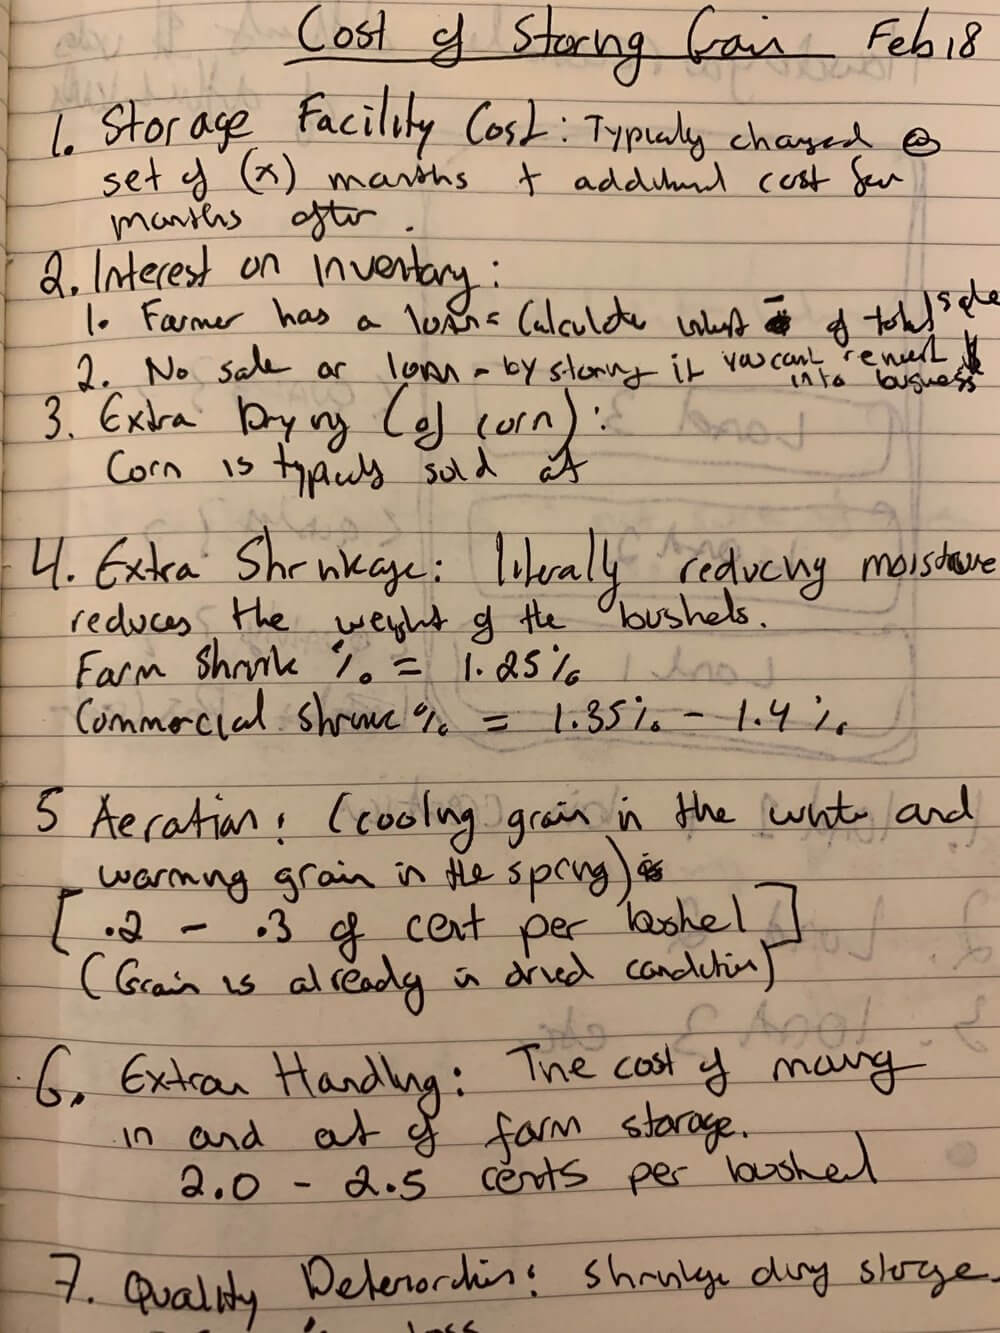 Cost of Storing Grain Feb 18
1. Storage Facility Cost: Typically charged
set of (x) months + additional cost for
months after.
2. Interest on Inventory:
1. Farmer has a loan = Calculate of total sale
2. No sale or loan - by storing it you cant reinvest
into business
3. Extra Drying (of corn):
Corn is typically sold at
4. Extra Shrinkage: literally reducing moisture
reduces the weight of the bushels.
Farm Shrink % = 1.25%
Commercial Shrink % = 1.35% - 1.4%
5 Aeration: (cooling grain in the winter and
warming grain in the spring)
[.2 - .3 of cent per bushel]
(Grain is already in dried condition)
6. Extra Handling: The cost of moving
in and out of farm storage.
2.0 - 2.5 cents per bushel
7. Quality Deterioration: shrinkage during storage.
loss